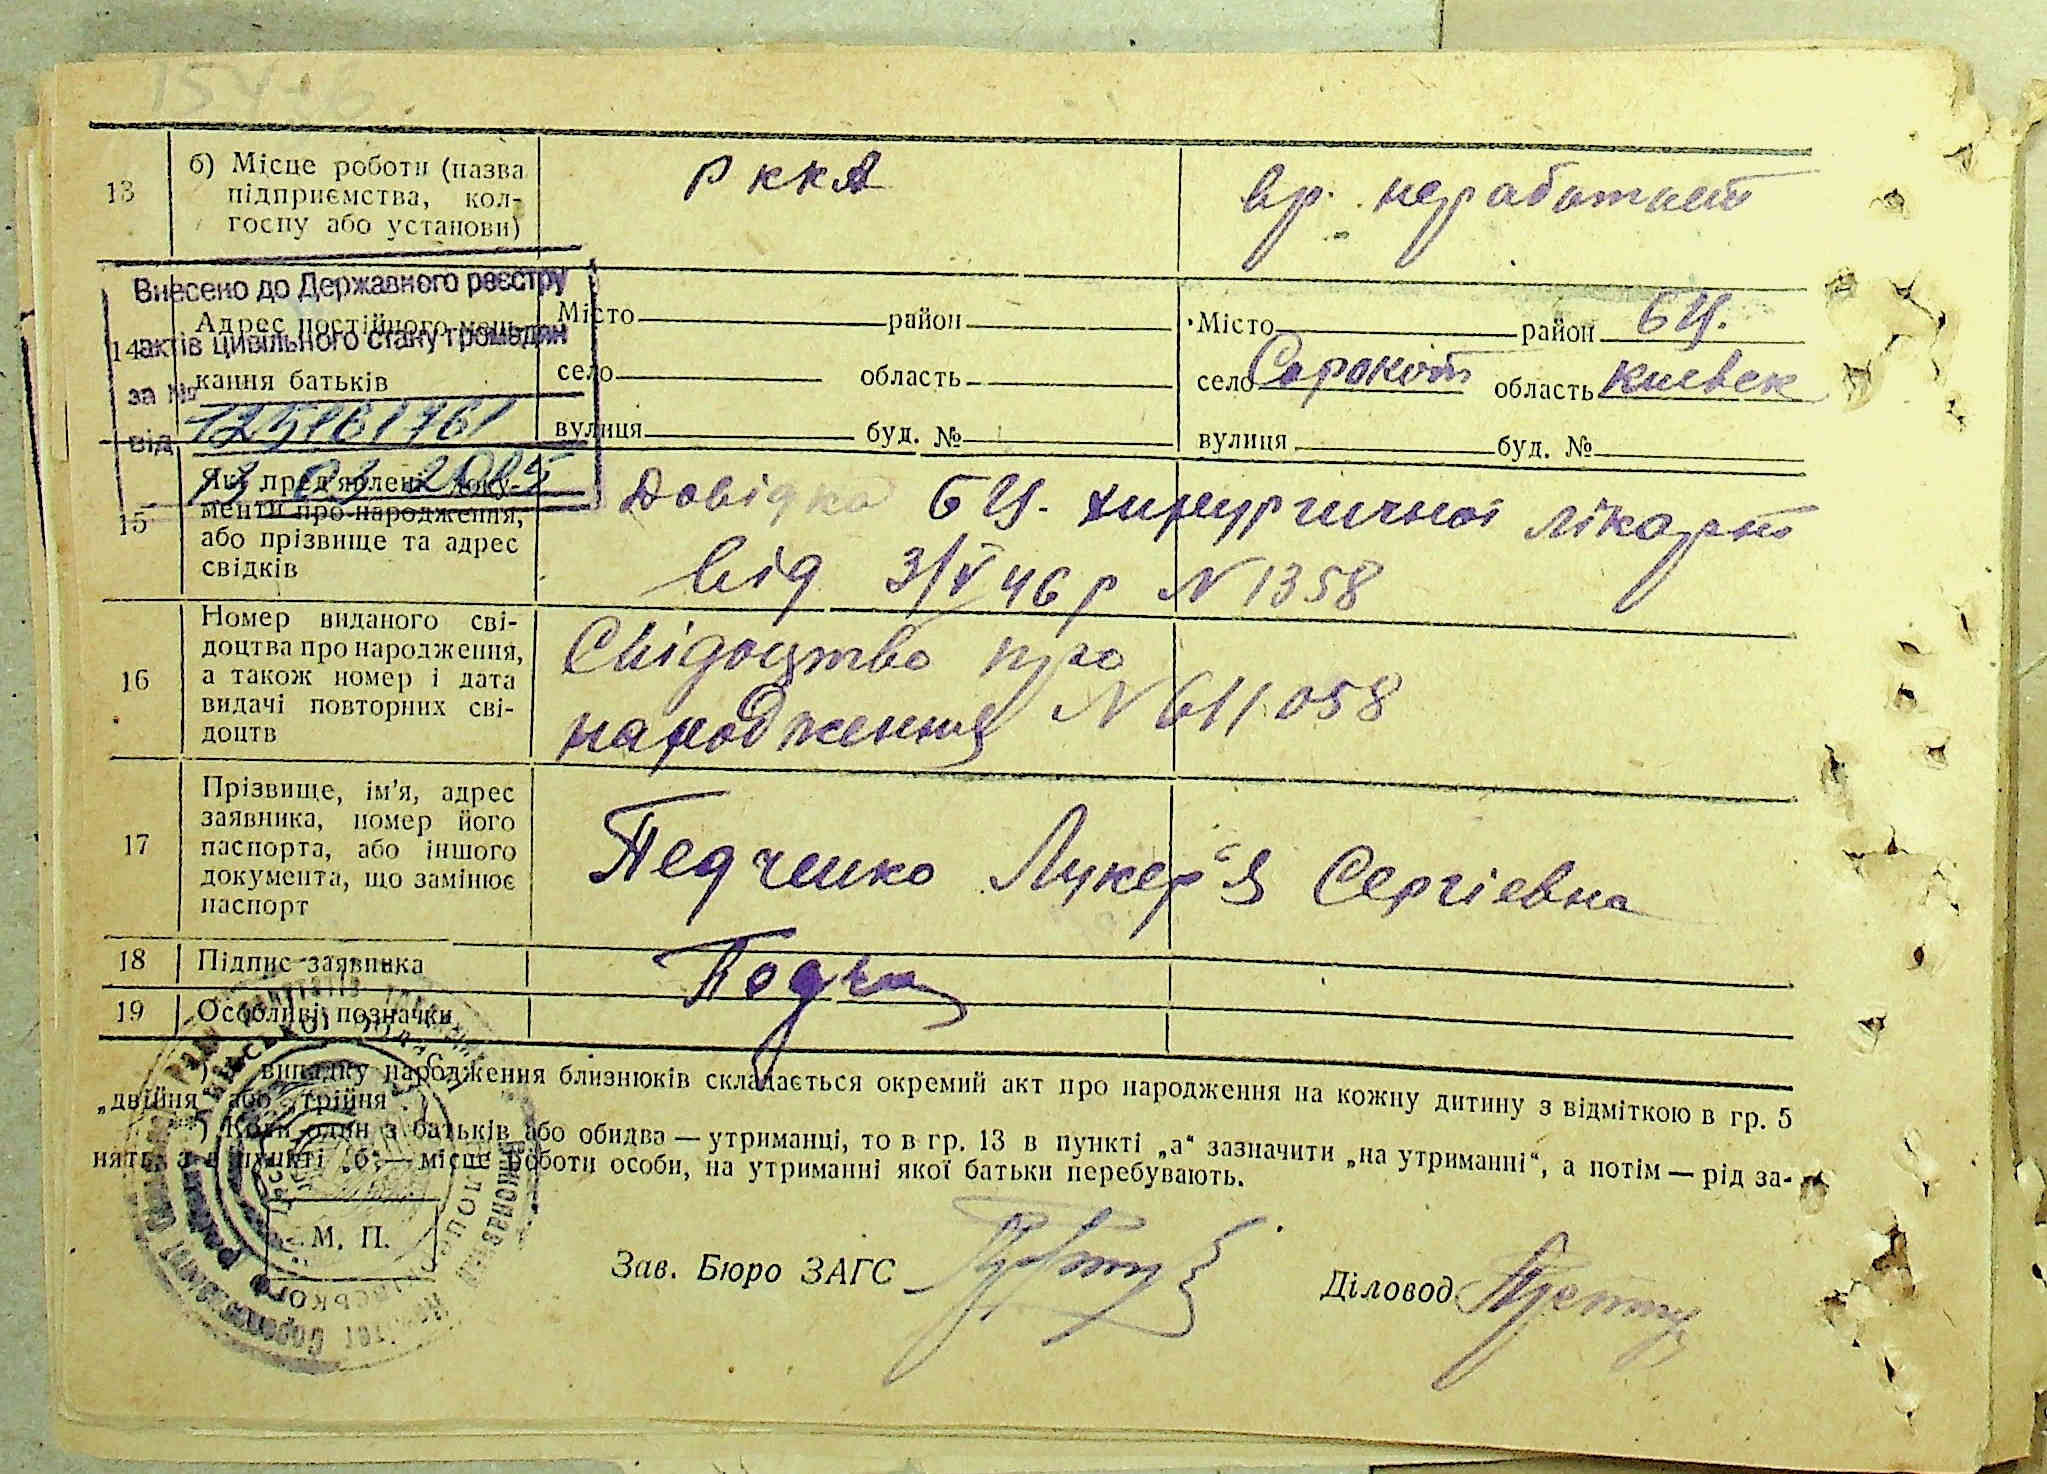 13
б) Місце роботи (назва підприємства, колгоспу або установи)
РККА
вр. неработает
Внесено до Державного реєстру
актів цивільного стану громадян
за №
від
14
Адрес постійного меш-
кання батьків
Місто район
село область
вулиця буд. №
Місто район БЦ.
село Сорокот область Киевск
вулиця буд. №
15
Які пред'явлені доку-
менти про народження,
або прізвище та адрес
свідків
Довідка БЦ. хирургичної лікарні
від 3/V 46 р N 1358
16
Номер виданого сві-
доцтва про народження,
а також номер і дата
видачі повторних сві-
доцтв
Свідоцтво про
народження N 611058
17
Прізвище, ім'я, адрес
заявника, номер його
паспорта, або іншого
документа, що замінює
паспорт
Педченко Лукер'я Сергіевна
18
Підпис заявника
19
Особливі позначки
випадку народження близнюків складається окремий акт про народження на кожну дитину з відміткою в гр. 5
„двійня" або „трійня"
Коли один з батьків або обидва — утриманці, то в гр. 13 в пункті „а" зазначити „на утриманні", а потім — рід за-
няття, а в пункті „б" — місце роботи особи, на утриманні якої батьки перебувають.
М. П.
Зав. Бюро ЗАГС
Діловод